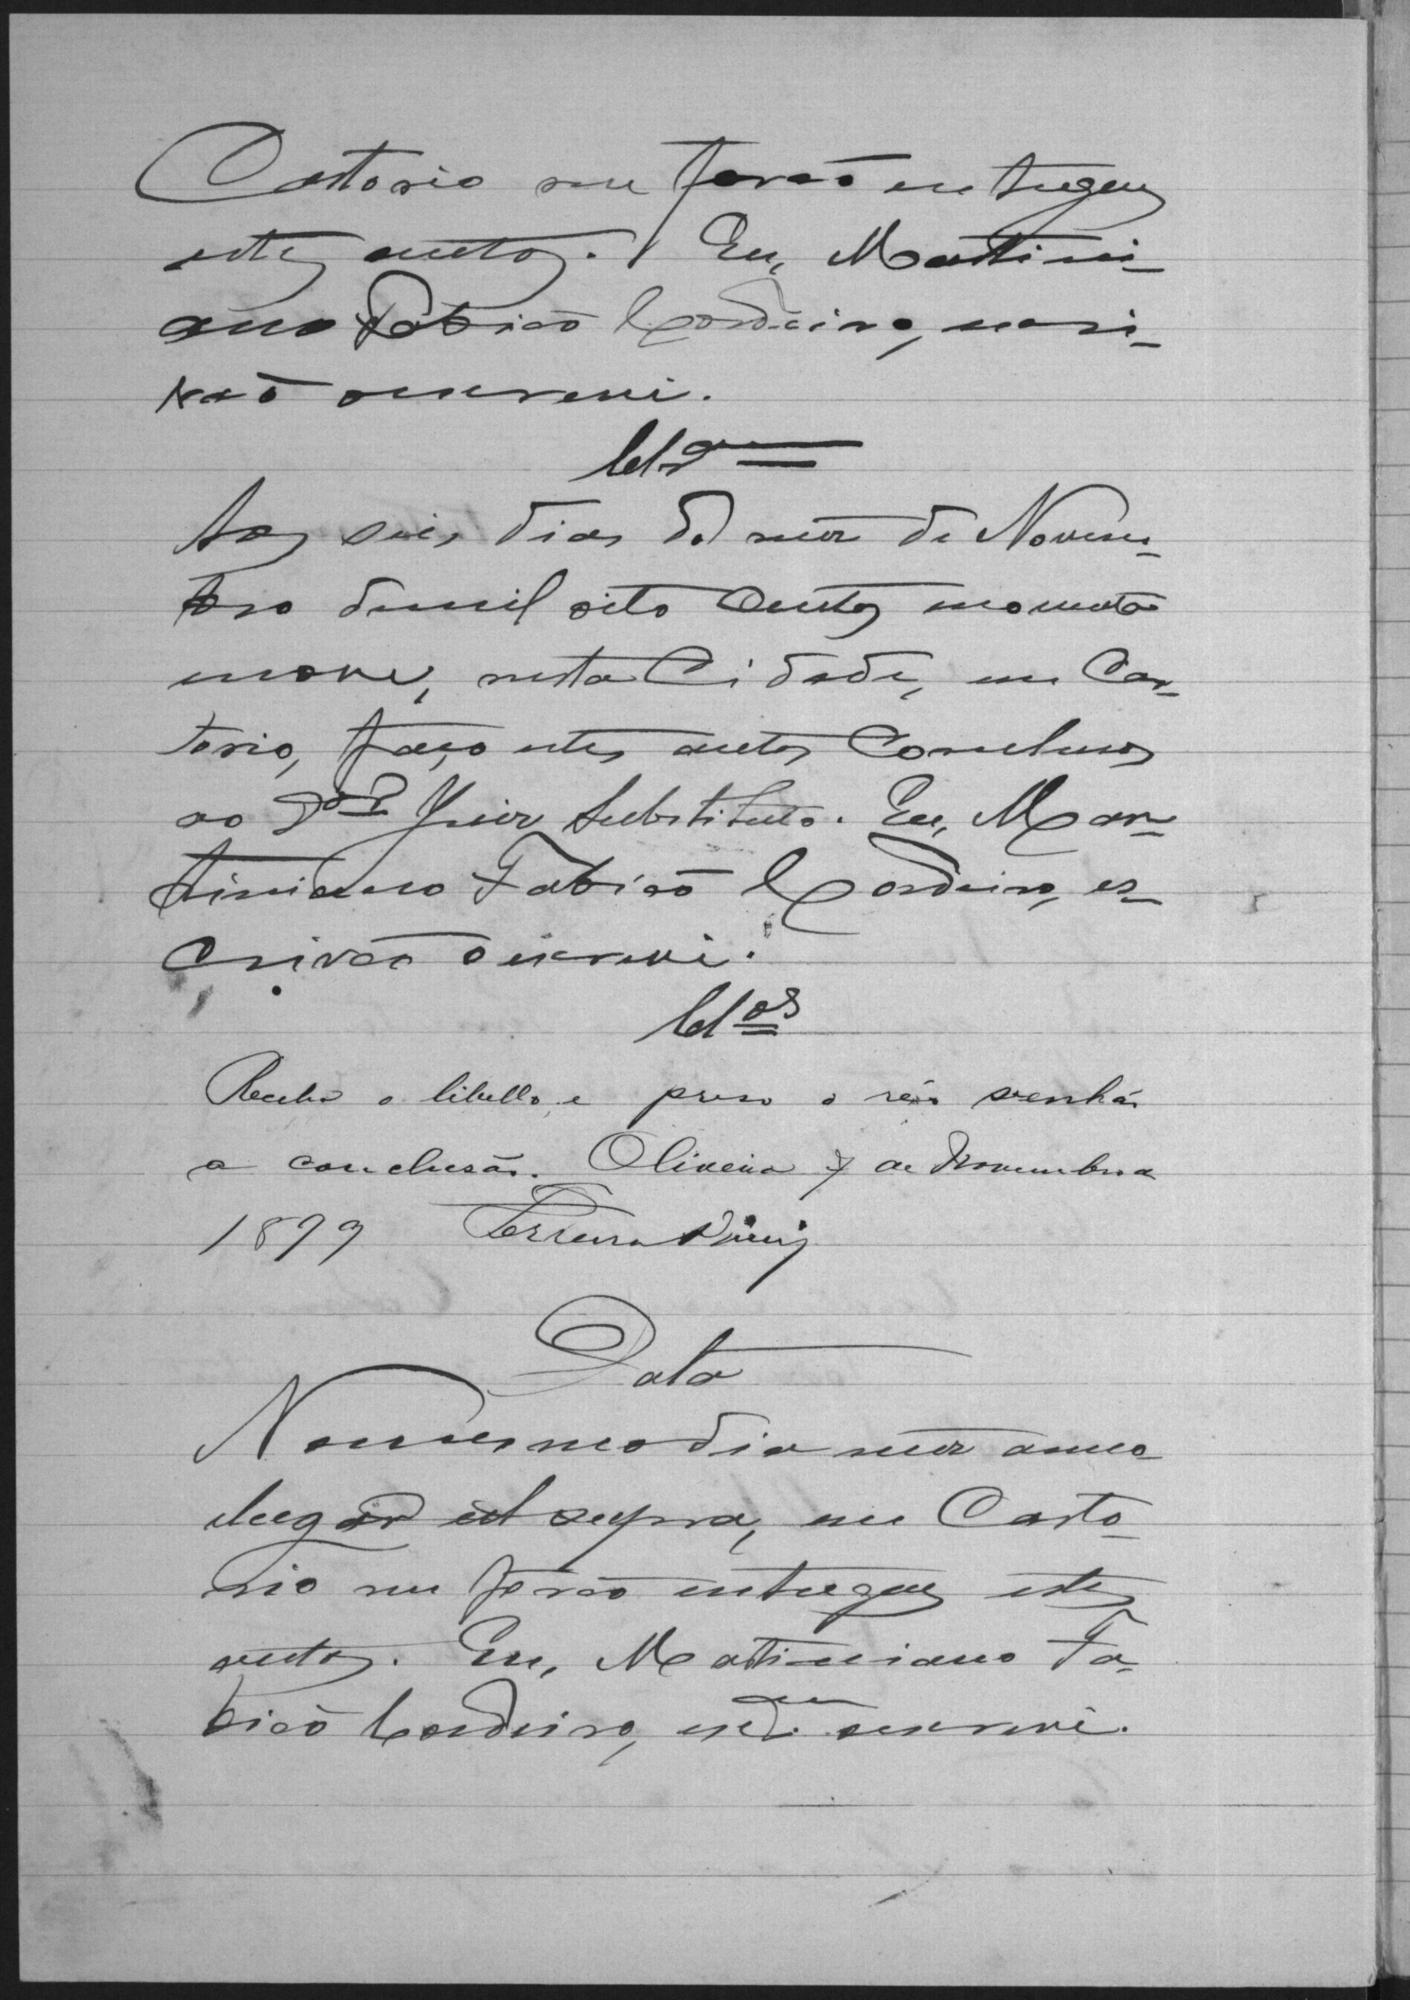 Cartorio me forão entregues
estes autos. Eu, Martini-
ano Fabião Cordeiro, escri-
vão o escrevi.
Clsº
Aos seis dias do mez de Novem-
bro de mil oito centos noventa
e nove, nesta Cidade, em Car-
torio, faço estes autos Conclusos
ao Dor Juiz Substituto. Eu, Mar-
tiniano Fabião Cordeiro, es-
crivão o escrevi.
Clos
Recebo o libello, e preso o réo venhão
a conclusão. Oliveira 7 de Novembro de
1899 Ferreira
Data
No mesmo dia mez anno
lugar ut supra, em Carto-
rio me forão entregues estes
autos. Eu, Martiniano Fa-
bião Cordeiro, escam o escrevi.